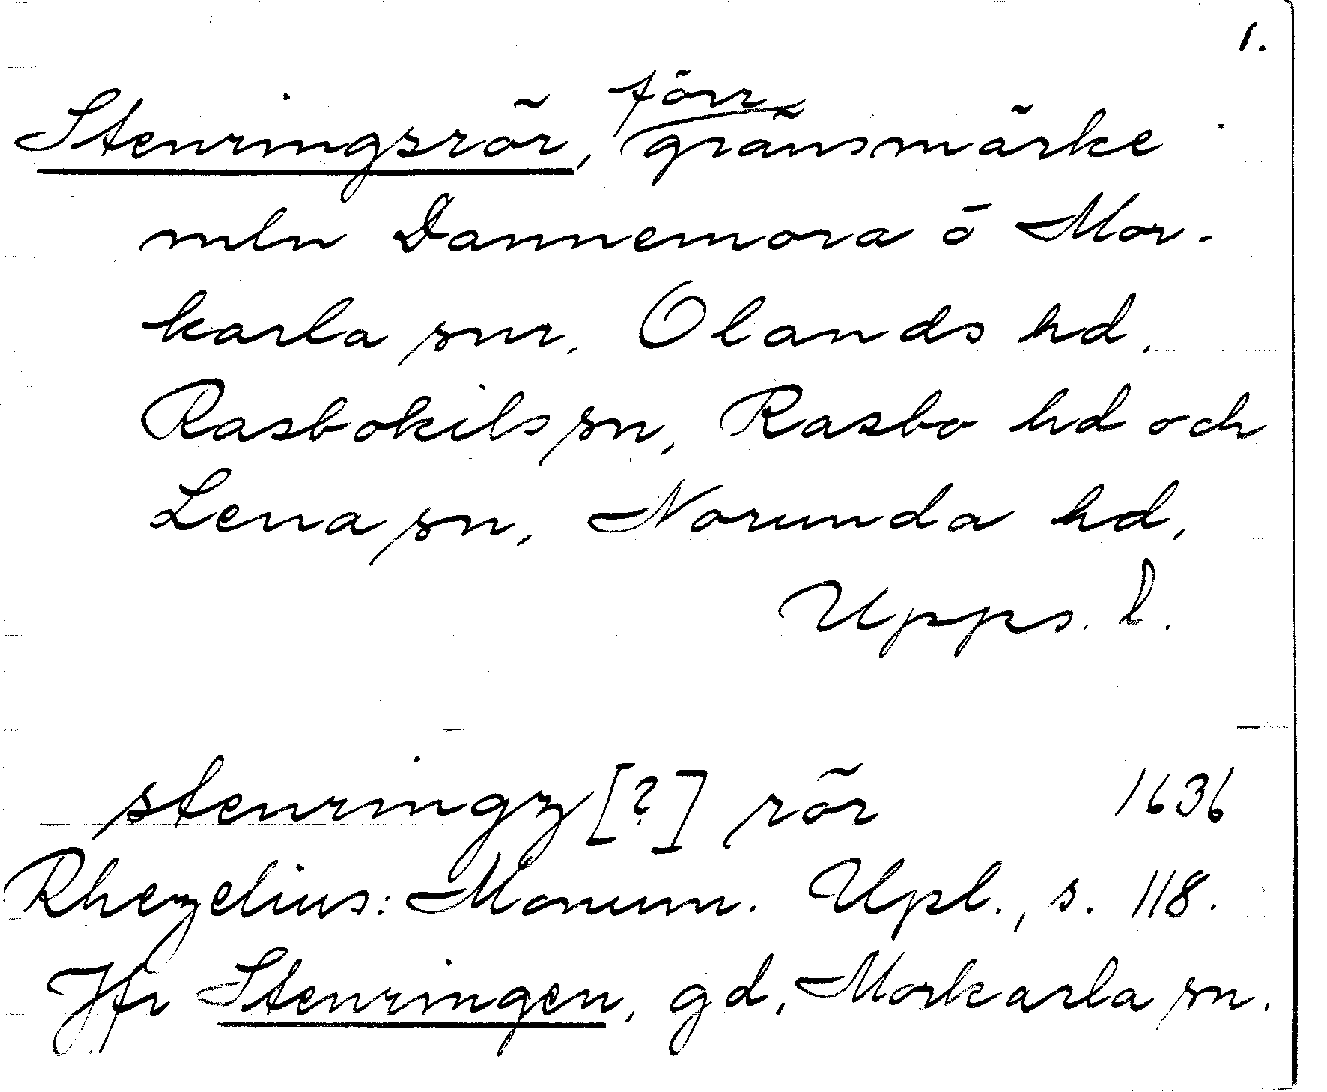 1.
Stenringsrör, förr gränsmärke
mln Dannemora o Mor-
karla snr, Olands hd,
Rasbokils sn, Rasbo hd och
Lena sn, Norunda hd,
Upps. l.
stenringz [?] rör 1636
Rhezelius: Monum. Upl., s. 118.
Jfr Stenringen, gd, Morkarla sn.